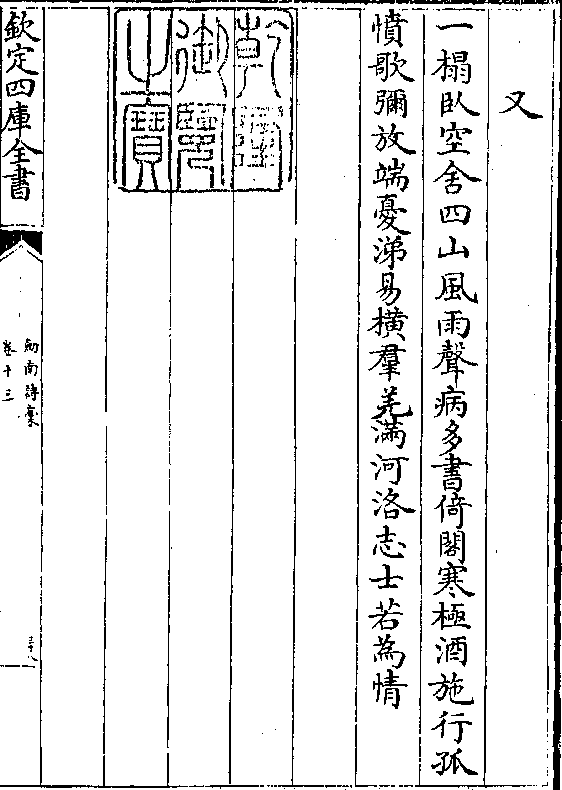 又
一榻臥空舍四山風雨聲病多書倚閣寒極酒施行孤
憤歌彌放端憂涕易橫羣羌滿河洛志士若為情
乾隆
御覽
之寶
欽定四庫全書
劒南詩稾
卷十三